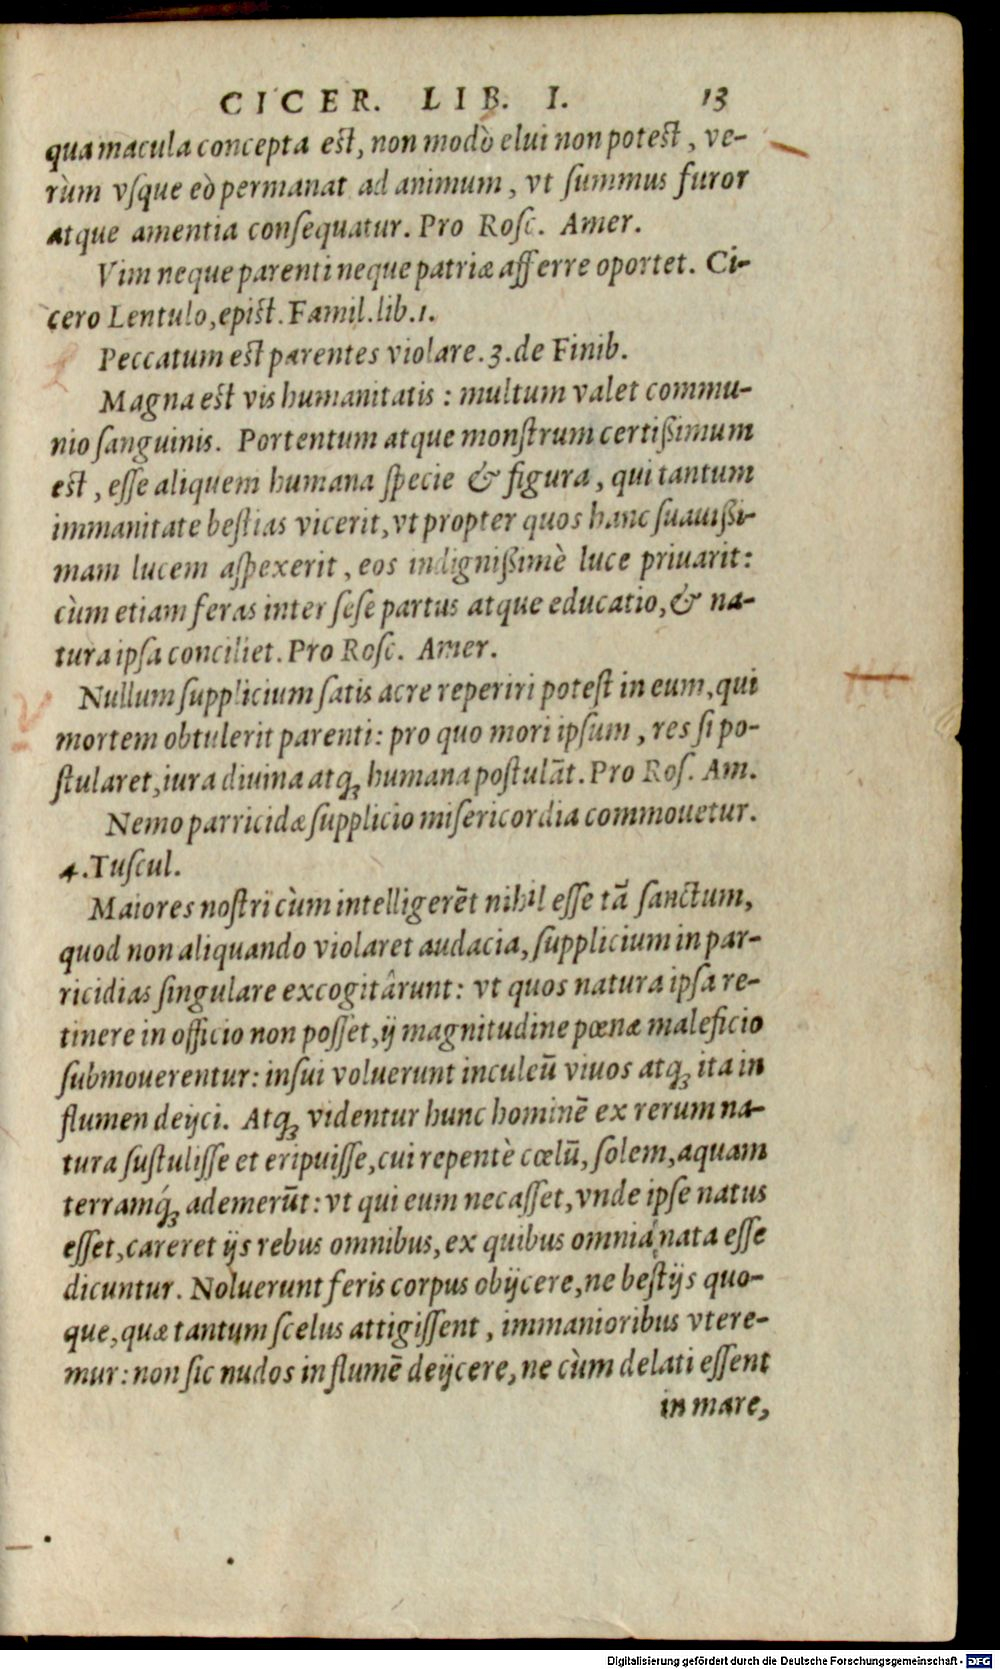 CICER. LIB. I. 13
qua macula concepta est, non modò elui non potest, ve-
rùm vsque eò permanat ad animum, vt summus furor
atque amentia consequatur. Pro Rosc. Amer.
Vim neque parenti neque patriæ afferre oportet. Ci-
cero Lentulo, epist. Famil. lib. 1.
Peccatum est parentes violare. 3. de Finib.
Magna est vis humanitatis: multum valet commu-
nio sanguinis. Portentum atque monstrum certißimum
est, esse aliquem humana specie & figura, qui tantum
immanitate bestias vicerit, vt propter quos hanc suauißi-
mam lucem aspexerit, eos indignißimè luce priuarit:
cùm etiam feras inter sese partus atque educatio, & na-
tura ipsa conciliet. Pro Rosc. Amer.
Nullum supplicium satis acre reperiri potest in eum, qui
mortem obtulerit parenti: pro quo mori ipsum, res si po-
stularet, iura diuina atqꝫ humana postulãt. Pro Ros. Am.
Nemo parricidæ supplicio misericordia commouetur.
4. Tuscul.
Maiores nostri cùm intelligerẽt nihil esse tã sanctum,
quod non aliquando violaret audacia, supplicium in par-
ricidias singulare excogitârunt: vt quos natura ipsa re-
tinere in officio non posset, ij magnitudine pœnæ maleficio
submouerentur: insui voluerunt in culeũ viuos atqꝫ ita in
flumen deijci. Atqꝫ videntur hunc hominẽ ex rerum na-
tura sustulisse et eripuisse, cui repentè cœlũ, solem, aquam
terramq́ꝫ ademerũt: vt qui eum necasset, vnde ipse natus
esset, careret ijs rebus omnibus, ex quibus omnia nata esse
dicuntur. Noluerunt feris corpus obijcere, ne bestijs quo-
que, quæ tantum scelus attigissent, immanioribus vtere-
mur: non sic nudos in flumẽ deijcere, ne cùm delati essent
in mare,
Digitalisierung gefördert durch die Deutsche Forschungsgemeinschaft - DFG